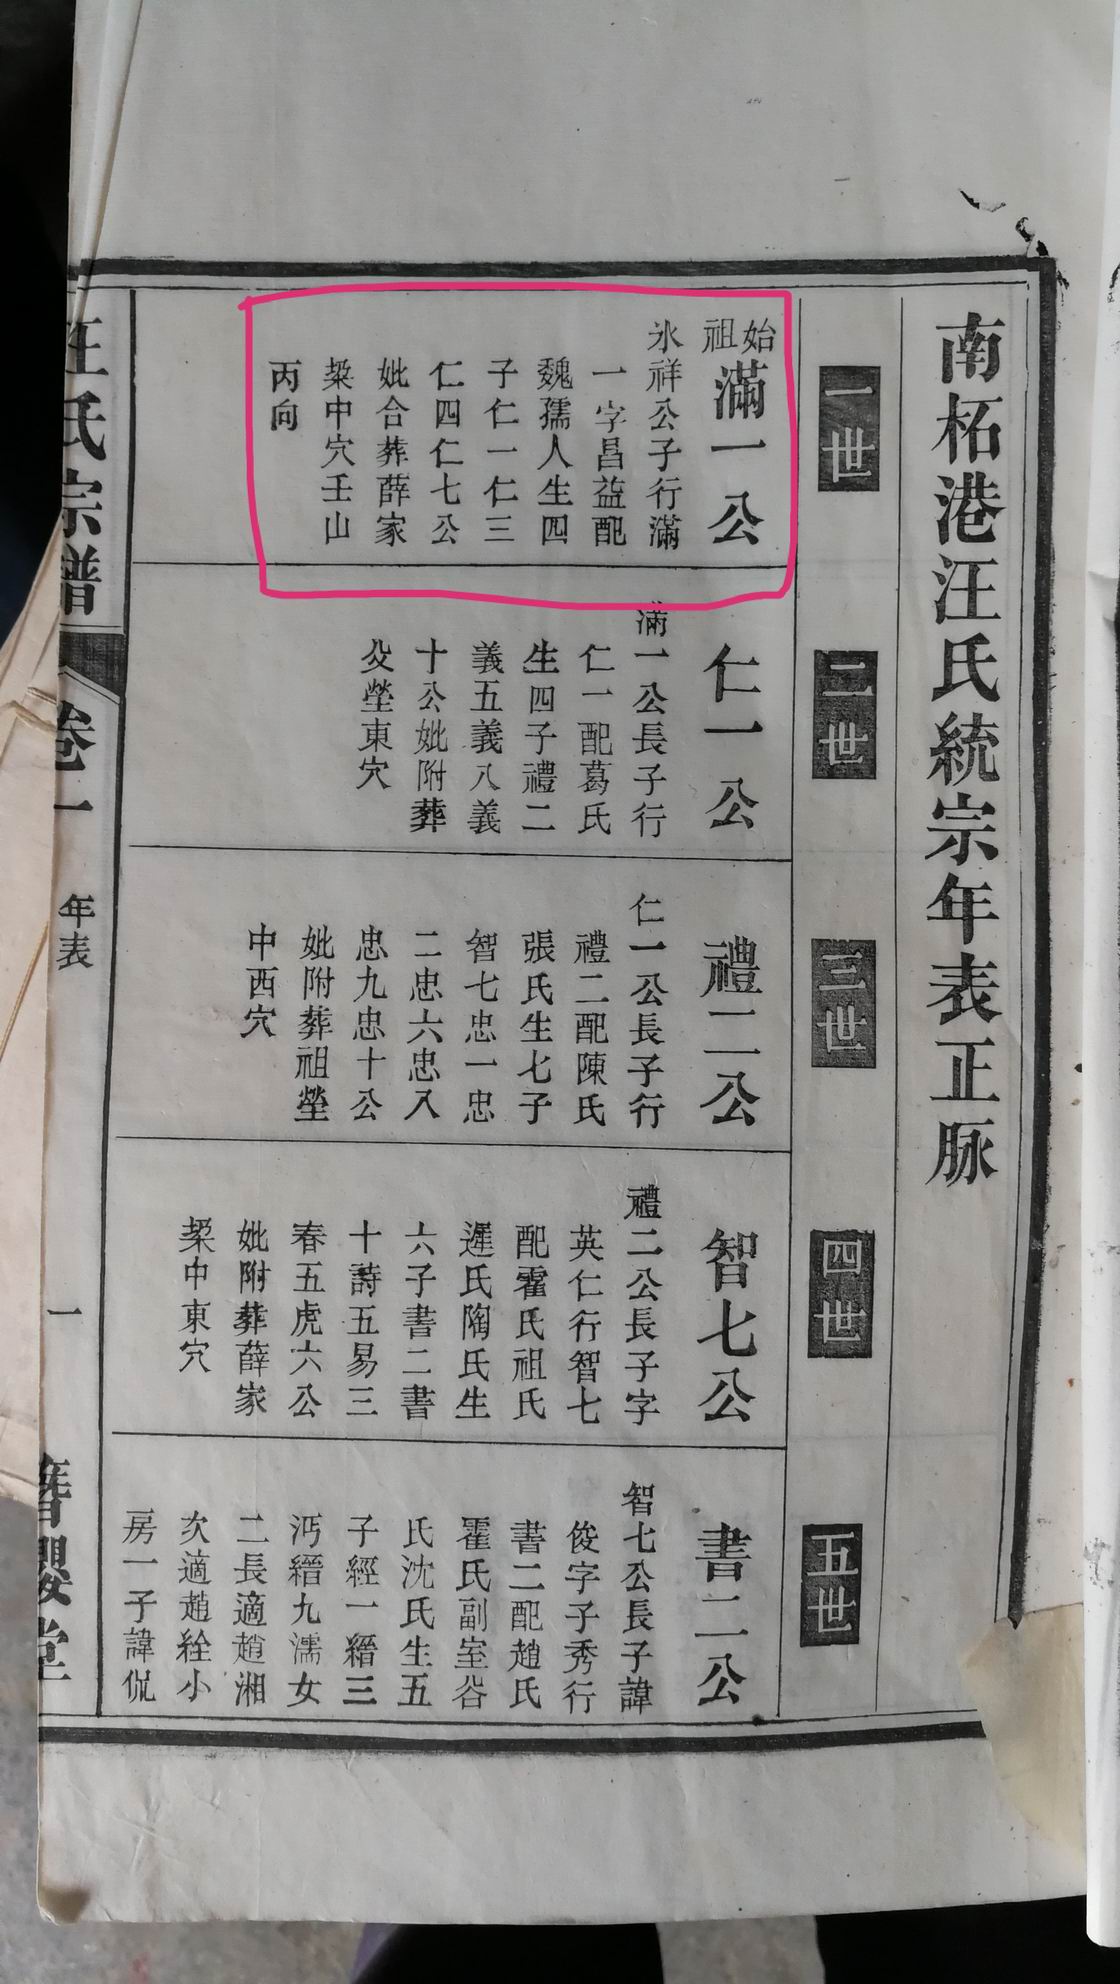 南柘港汪氏統宗年表正脉
一世
二世
三世
四世
五世
始祖
滿一公
氷祥公子行滿
一字昌益配
魏孺人生四
子仁一仁三
仁四仁七公
妣合葬薛家
槼中穴壬山
丙向
仁一公
滿一公長子行
仁一配葛氏
生四子禮二
義五義八義
十公妣附葬
父塋東穴
禮二公
仁一公長子行
禮二配陳氏
張氏生七子
智七忠一忠
二忠六忠八
忠九忠十公
妣附葬祖塋
中西穴
智七公
禮二公長子字
英仁行智七
配霍氏祖氏
遲氏陶氏生
六子書二書
十詩五易三
春五虎六公
妣附葬薛家
槼中東穴
書二公
智七公長子諱
俊字子秀行
書二配趙氏
霍氏副室谷
氏沈氏生五
子經一縉三
沔縉九濡女
二長適趙湘
次適趙銓小
房一子諱侃
汪氏宗譜
卷一
年表
一
簪纓堂